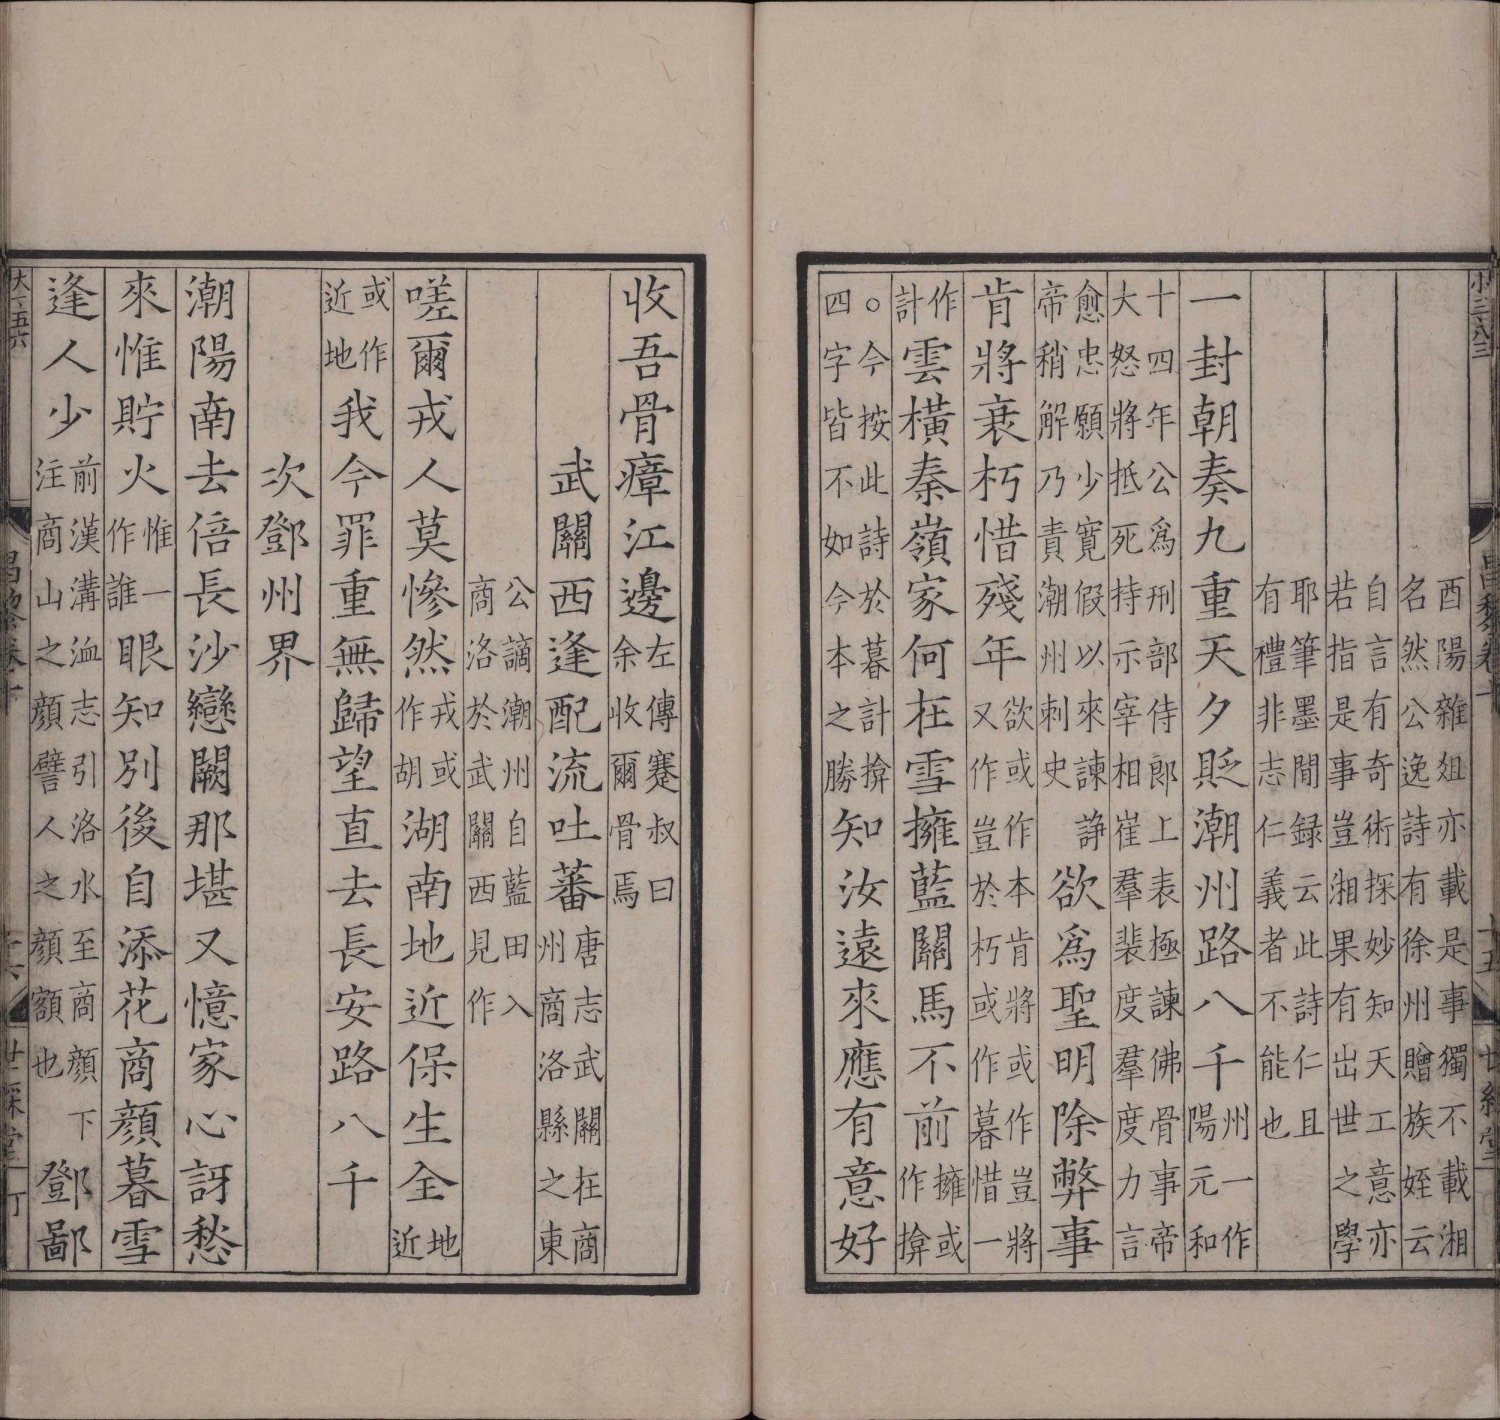 小三八三 昌黎卷十 十五 世綵堂
酉陽雜俎亦載是事獨不載湘
名然公逸詩有徐州贈族姪云
自言有奇術探妙知天工意亦
若指是事豈湘果有出世之學
耶筆墨閒録云此詩仁且
有禮非志仁義者不能也
一封朝奏九重天夕貶潮州路八千 州一作 陽元和
十四年公爲刑部侍郎上表極諫佛骨事帝
大怒將抵死持示宰相崔羣裴度羣度力言
愈忠願少寬假以來諫諍 帝稍解乃責潮州刺史 欲爲聖明除弊事
肯將衰朽惜殘年 欲或作本肯將或作豈將 又作豈於朽或作暮惜一
作 計 雲橫秦嶺家何在雪擁藍關馬不前 擁或 作揜
○今按此詩於暮計揜 四字皆不如今本之勝 知汝遠來應有意好
收吾骨瘴江邊 左傳蹇叔曰 余收爾骨焉
武關西逢配流吐蕃 唐志武關在商 州商洛縣之東
公謫潮州自藍田入
商洛於武關西見作
嗟爾戎人莫慘然 戎或 作胡 湖南地近保生全 地 近
或作 近地 我今罪重無歸望直去長安路八千
次鄧州界
潮陽南去倍長沙戀闕那堪又憶家心訝愁
來惟貯火 惟一 作誰 眼知別後自添花商顏暮雪
逢人少 前漢溝洫志引洛水至商顏下 注商山之顏譬人之顏額也 鄧鄙
大一五六 昌黎卷十 十六 世綵堂 丁